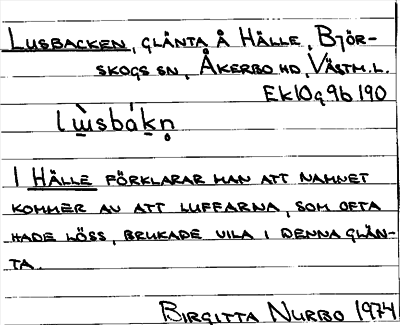 LUSBACKEN, GLÄNTA Å HÄLLE, BJÖR-
SKOGS SN, ÅKERBO HD, VÄSTM.L.
EK 10g 9b 190
lɯ̀sbákn̥
I HÄLLE FÖRKLARAR MAN ATT NAMNET
KOMMER AV ATT LUFFARNA, SOM OFTA
HADE LÖSS, BRUKADE VILA I DENNA GLÄN-
TA.
BIRGITTA NURBO 1974